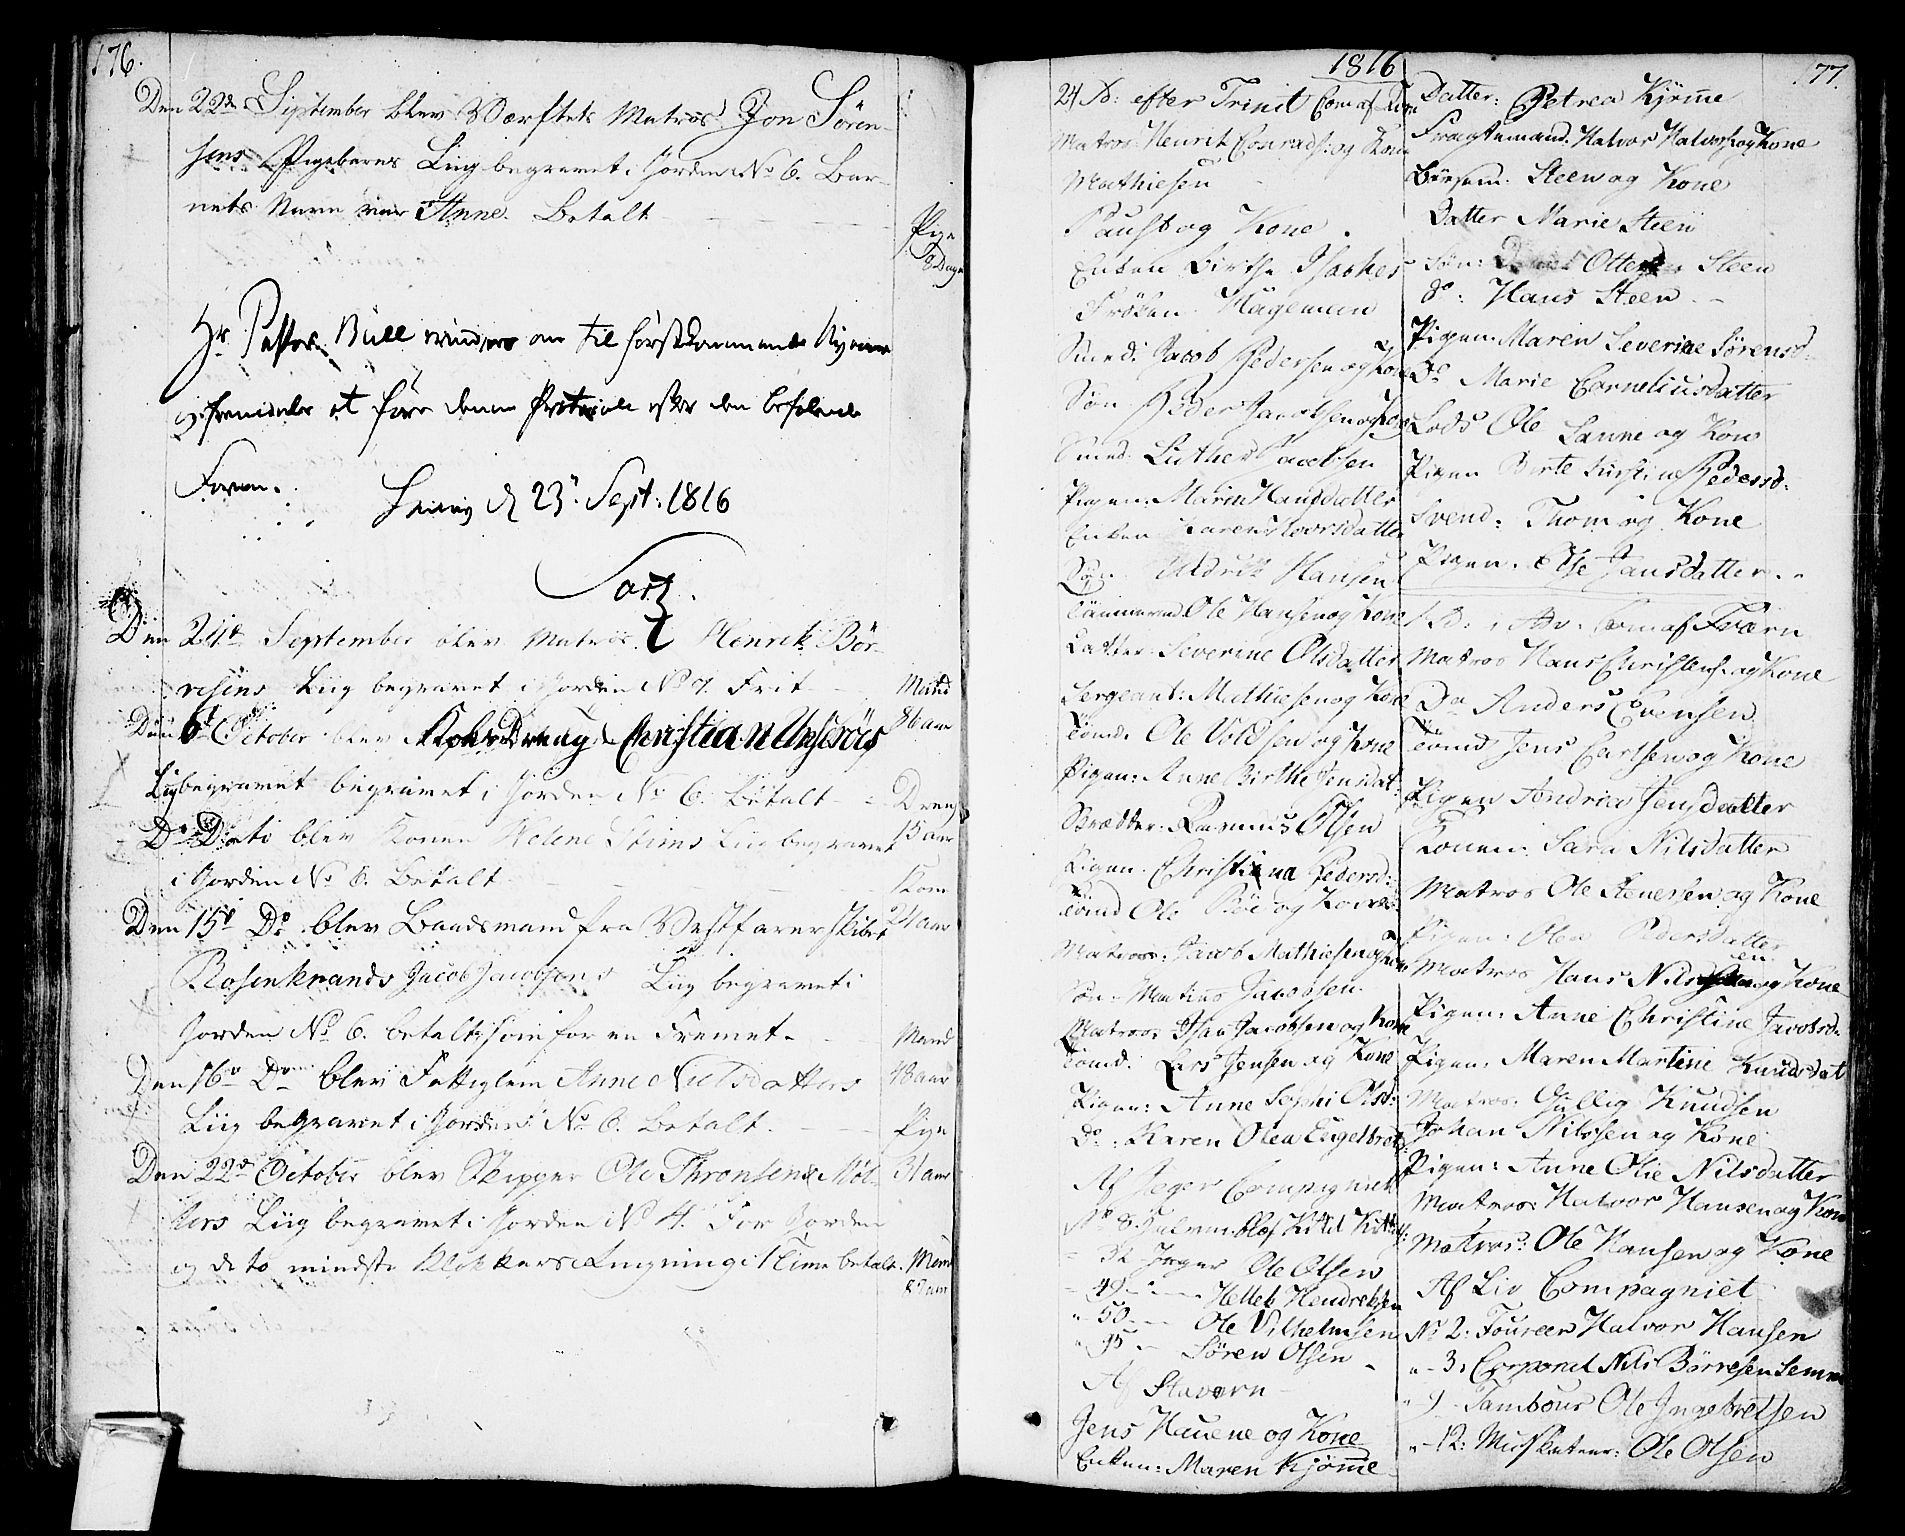 176.
Den 22de September blev Værftets Matros Jon Sören-
sens Pigebarns Liig begravet i Jorden No 6. Bar-
nets Navn var Anne. Betalt
Pige
8 Dage
Hr Pastor Bull mindes om til förstkommende Nyaar
at före denne Protocole efter den befalede
Form.
d 23' Sept: 1816
Den 24de September blev Matros Henrik Bör-
resens Liig begravet i Jorden No 7. Frit
Mand
36 aar
Den 6te October blev Christian
Liig begravet begravet i Jorden No 6. Betalt
Dreng
15 aar
Do Dato blev Konen Helene Stims Liig begravet
i Jorden No 6. Betalt
Kone
24 aar
Den 15de Do blev Baadsmand fra Vestfarer skibet
Rosenkrands Jacob Jacobsens Liig begravet i
Jorden No 6. betalt som for en Fremet.
Mand
48 aar
Den 16de Do blev Fattiglem Anne Nielsdatters
Liig begravet i Jorden No 6. Betalt.
Pige
31 aar
Den 22de October blev Skipper Ole Thronsens Möl-
kers Liig begravet i Jorden No 4. For Jorden
og de to mindste Klokkers Ringning i 1 Time betalt.
Mand
1816
77.
24 S: efter Trinit Com af
Matros: Henrik Conrads: og Kone
Mathiesen
Faust og Kone
Enken Birthe Isachs
Fröken Hagemann
Smed: Jacob Pedersen og Kone
Sön Peder Jacobsen
Smed: Luther Jacobsen
Pigen: Maria Hansdatter
Enken Karen Iversdatter
Sön Uldrik Hansen
Tömmermd Ole Hansen og Kone
Datter: Severine Olsdatter
Sergeant: Mathiesen og Kone
Tömd: Ole Voldsen og Kone
Pigen: Anne Birthe Jensdat:
Skrædder: Rasmus Olsen
Pigen Christina Pedersd:
Tömd Ole Böe og Kone
Matros: Jacob Mathiesen og Kone
Sön Martinus Jacobsen
Matros: Isac Jacobsen og Kone
Tömd: Lars Jensen og Kone
Pigen: Anne Sophi Olsd:
Do: Karen Olea Engelbret:
Af Jæger Compagniet
No 8. Kittil
" 32 Jæger Ole Olsen
" 49 Helleb Hendrehsen
" 50 Ole Vilhelmsen
" 95 Sören Olsen
Af Stavern
Jens Hauene og Kone
Enken: Maren Kjöme
Datter: Petrea Kjöme
Fragtemand: Halvor Halvors: og Kone
Steen og Kone
Datter Marie Steen
Sön: Otter Steen
do: Hans Steen
Pigen: Maren Severine Sörensd:
Do Marie Corneliusdatter
Lods Ole Sanne og Kone
Pigen Birte Kirstine Pedersd:
Svend: Thom og Kone
Pigen: Else Jansdatter
1 S: i Adv: Com af Fværn
Matros Hans Christens: og Kone
Do Anders Evensen
Tömd Jens Carlsen og Kone
Pigen Andrea Jensdatter
Konen: Sara Nilsdatter
Matros Ole Stenersen og Kone
Pigen: Olea Pedersdatter
Matros Hans Nilsen og Kone
Pigen: Anne Christine Jacobsd:
Pigen: Maren Martine Knudsdat
Matros: Gullig Knudsen
Johan Nilssen og Kone
Pigen: Anne Olie Nilsdatter
Matros: Halvor Hansen og Kone
Matros: Ole Hansen og Kone
Af Liv Compagniet
No 2: Foureer Halvor Hansen
" 3: Corporal Nils Börresen Semm
" 9 Tambour Ole Ingebretsen
" 12: Musketeer: Ole Olsen